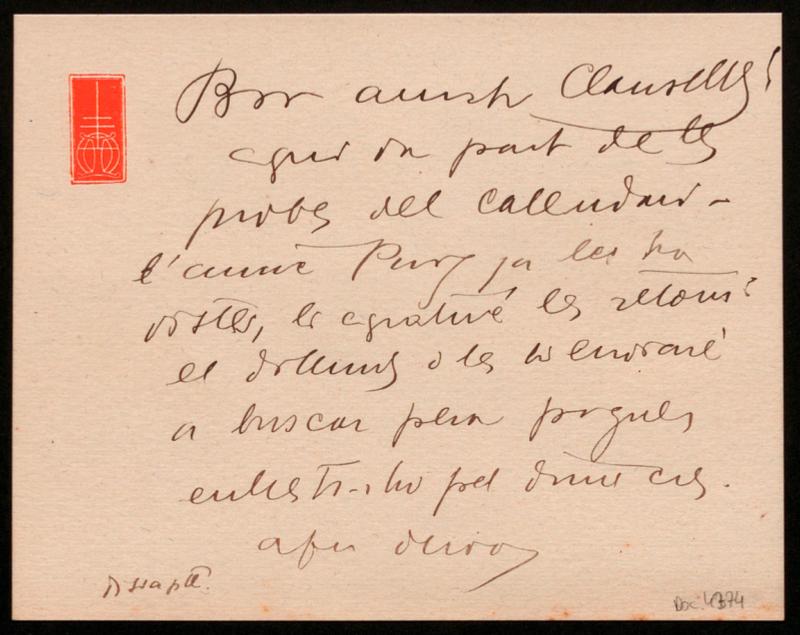 Bon amich Clausolles:
aquí va part de les
probes del Calendari-
l'amic Puig ja les ha
vistes, li agrahiré les retorni
el dilluns o les hi enviaré
a buscar pera pogues
enllestir-ho pel dimecres.
afm
Dissapte.
Doc. 4374